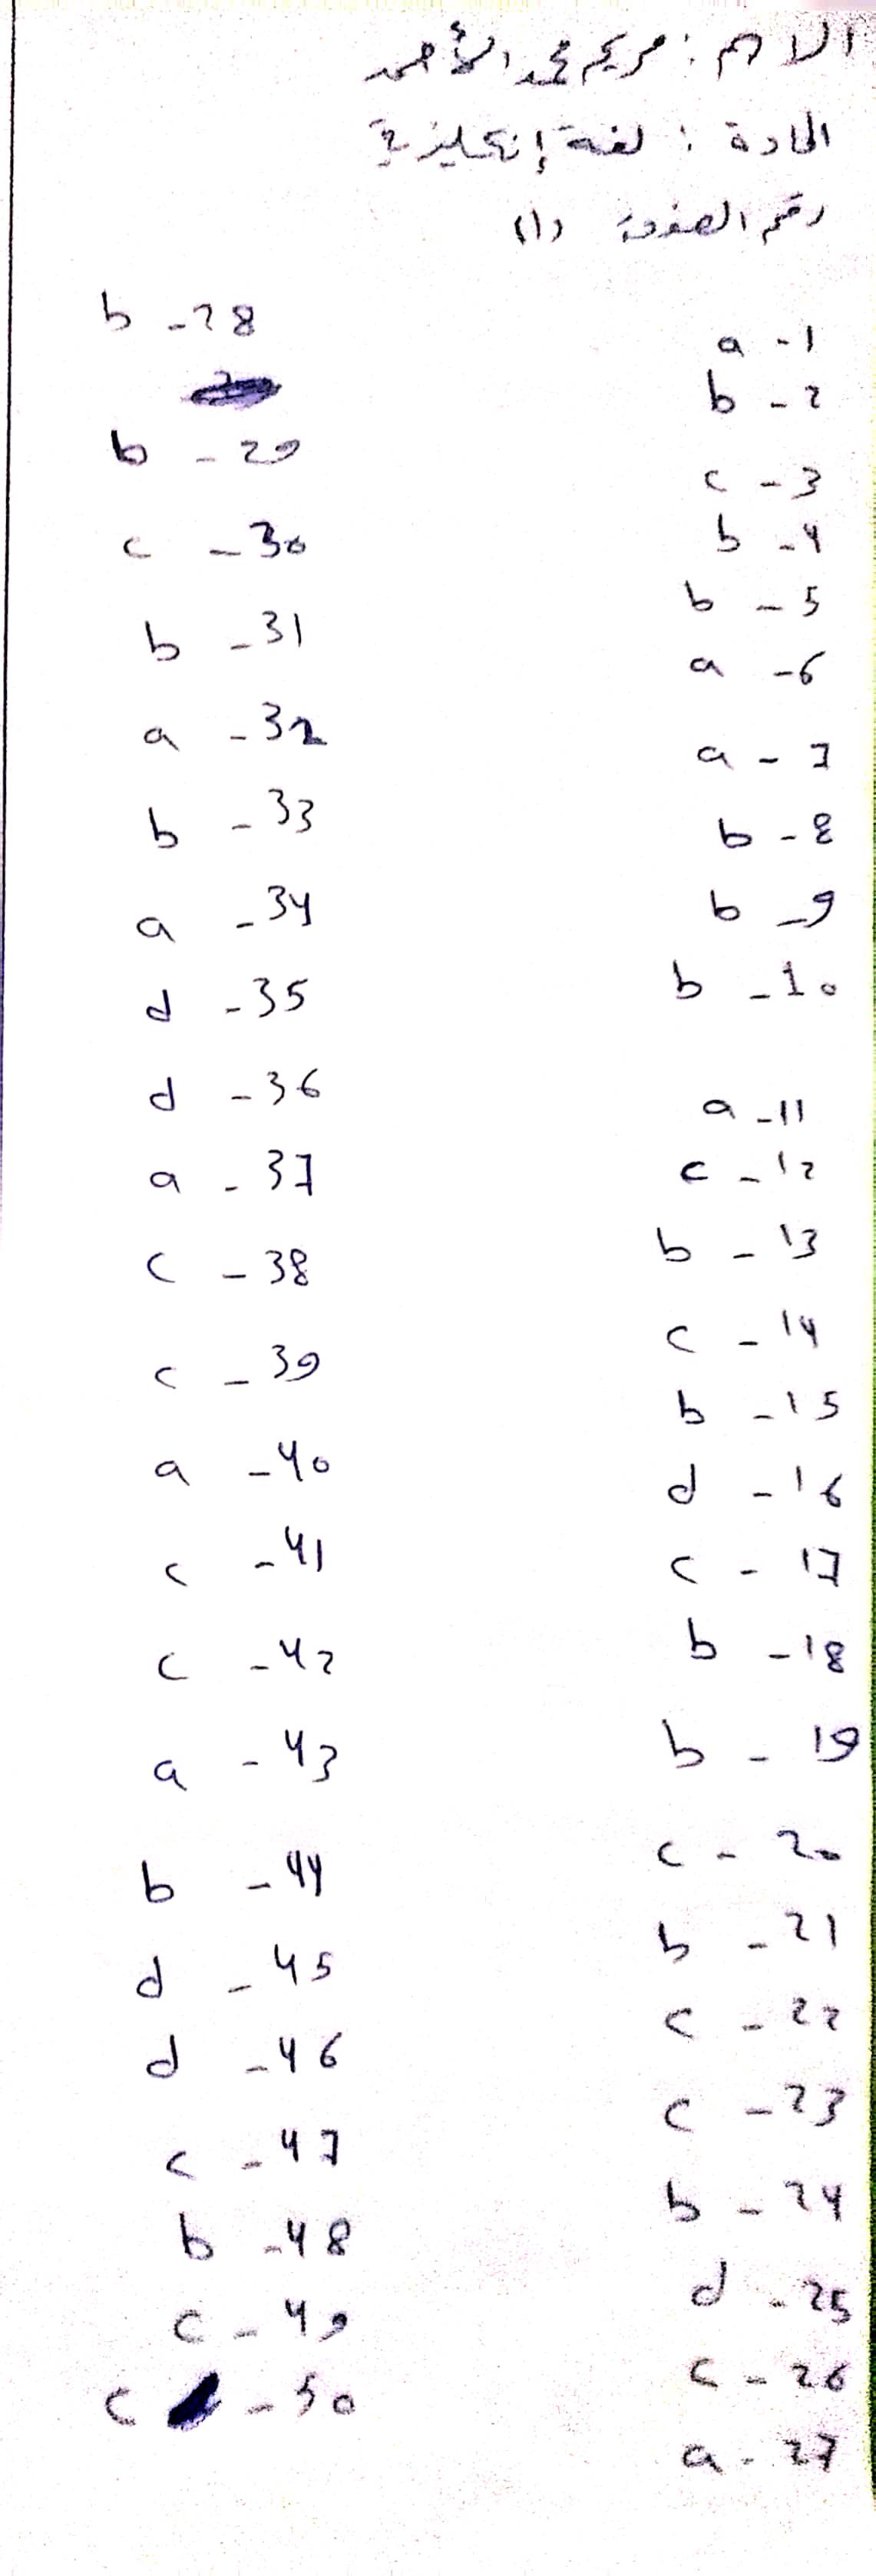 الاسم : مريم محمد الأحمد
المادة : لغة إنكليزية
رقم الصفحة (1)
a - 1
b - 2
c - 3
b - 4
b - 5
a - 6
a - 7
b - 8
b - 9
b - 10
a - 11
c - 12
b - 13
c - 14
b - 15
d - 16
c - 17
b - 18
b - 19
c - 20
b - 21
c - 22
c - 23
b - 24
d - 25
c - 26
a - 27
b - 28
b - 29
c - 30
b - 31
a - 32
b - 33
a - 34
d - 35
d - 36
a - 37
c - 38
c - 39
a - 40
c - 41
c - 42
a - 43
b - 44
d - 45
d - 46
c - 47
b - 48
c - 49
c - 50